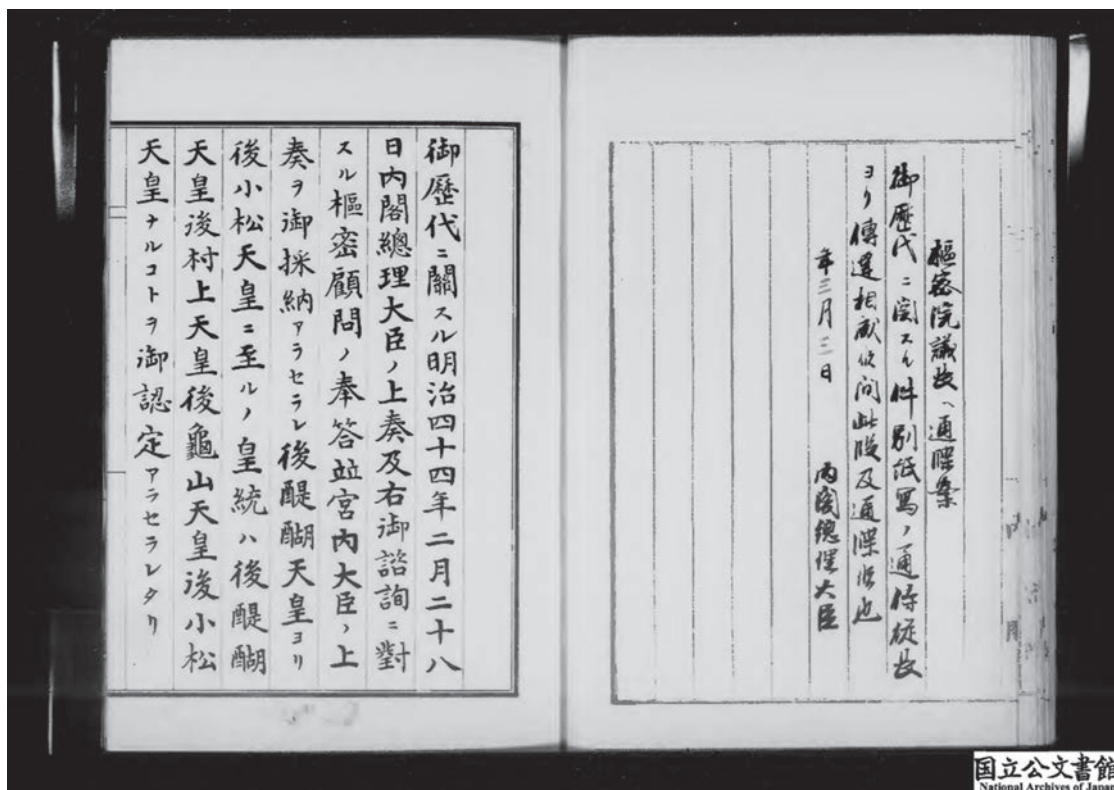 樞密院議長ヘ通牒案
御歴代ニ関スル件別紙寫ノ通侍従長
ヨリ傳達相成候間此段及通牒候也
年三月三日 内閣總理大臣
御歷代ニ關スル明治四十四年二月二十八
日內閣總理大臣ノ上奏及右御諮詢ニ對
スル樞密顧問ノ奉答竝宮內大臣ノ上
奏ヲ御採納アラセラレ後醍醐天皇ヨリ
後小松天皇ニ至ルノ皇統ハ後醍醐
天皇後村上天皇後龜山天皇後小松
天皇ナルコトヲ御認定アラセラレタリ
国立公文書館
National Archives of Japan